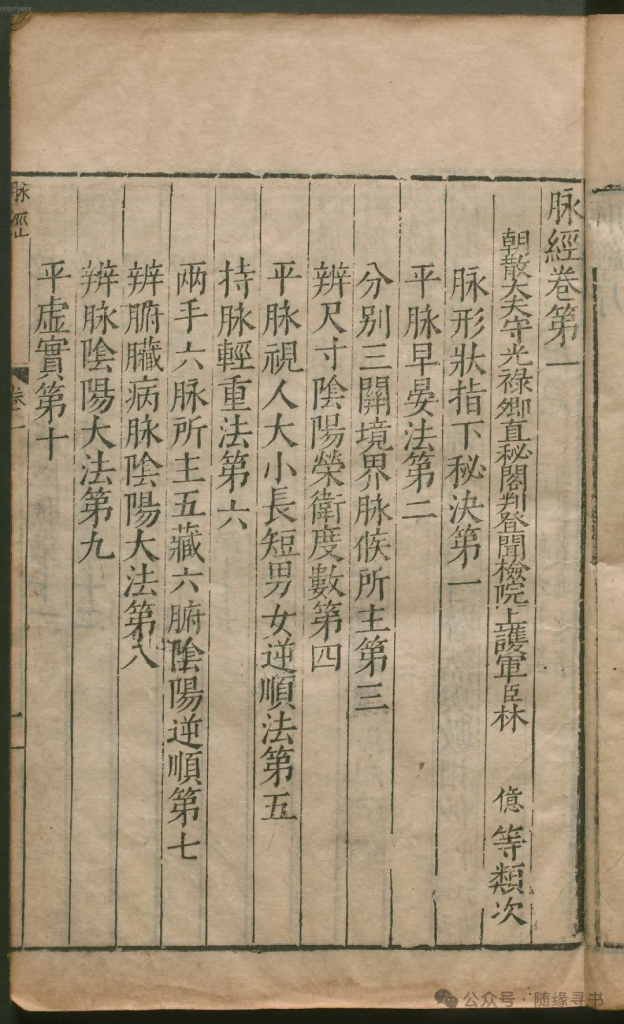 脉經卷第一
朝散大夫守光祿卿直秘閣判登聞檢院上護軍臣林 億 等類次
脉形狀指下秘決第一
平脉早晏法第二
分别三關境界脉候所主第三
辨尺寸陰陽榮衛度數第四
平脉視人大小長短男女逆順法第五
持脉輕重法第六
兩手六脉所主五藏六腑陰陽逆順第七
辨腑臟病脉陰陽大法第八
辨脉陰陽大法第九
平虛實第十
脉經
卷一
一
公众号·随缘寻书